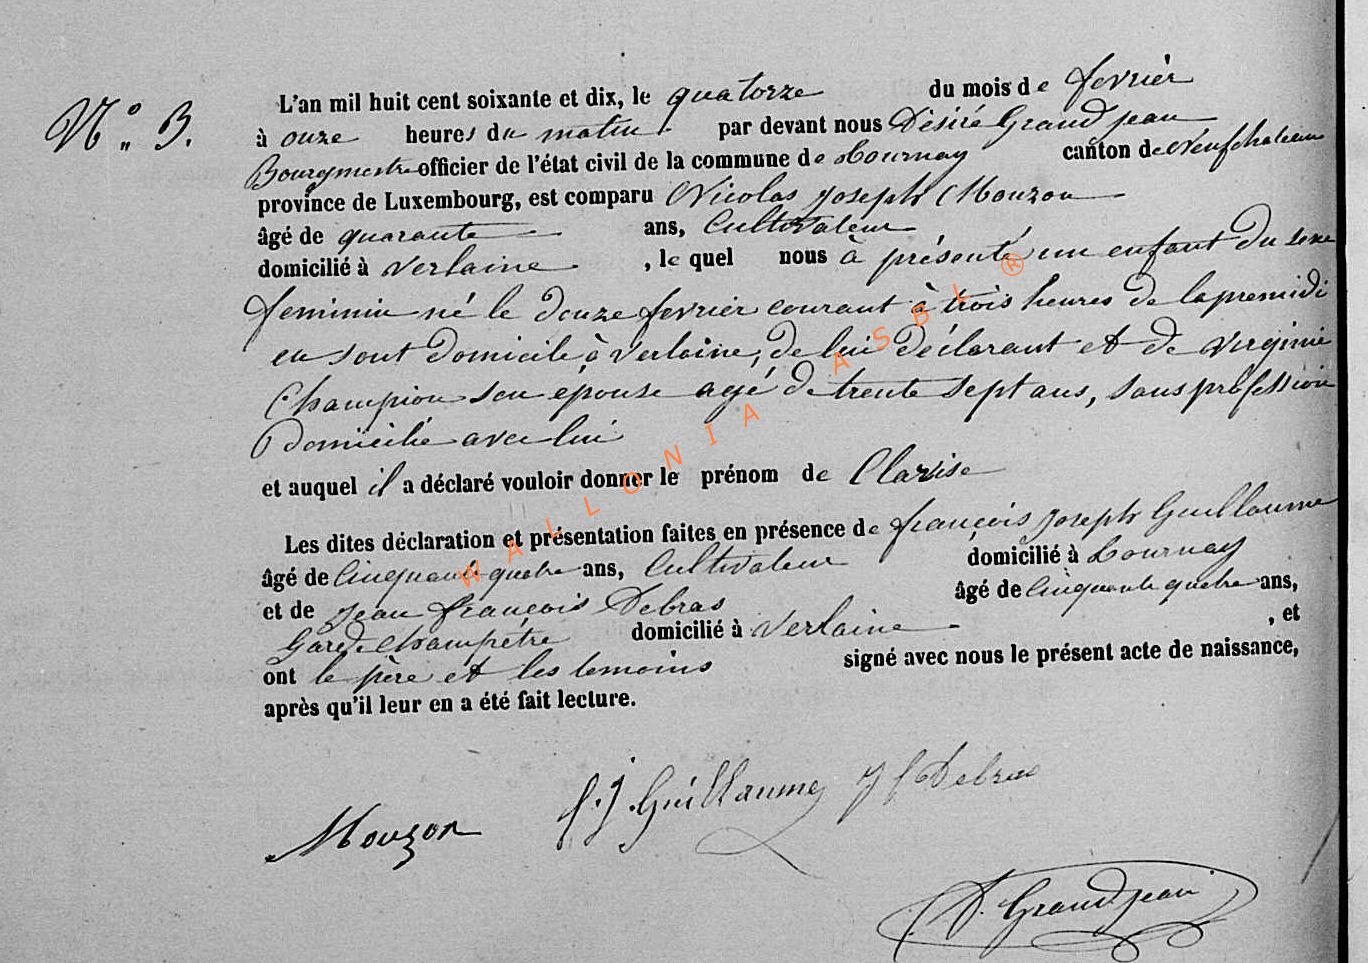 N° 3.
L'an mil huit cent soixante et dix, le quatorze du mois de fevrier
à onze heures du matin par devant nous Désiré Grandjean
Bourgmestre officier de l'état civil de la commune de Tournay canton de Neufchateau
province de Luxembourg, est comparu Nicolas Joseph Mouzon
âgé de quarante ans, Cultivateur
domicilié à Verlaine, le quel nous à présenté un enfant du sexe
feminin né le douze fevrier courant à trois heures de
en sont domicile à Verlaine, de lui déclarant et de Virginie
Champion son épouse agé de trente sept ans, sans profession
Domicilié avec lui
et auquel il a déclaré vouloir donner le prénom de Clarise
Les dites déclaration et présentation faites en présence de françois Joseph Guillaume
âgé de Cinquante quatre ans, Cultivateur domicilié à Tournay
et de Jean François Debras âgé de Cinquante quatre ans,
Garde Champétre domicilié à Verlaine, et
ont le père et les temoins signé avec nous le présent acte de naissance,
après qu'il leur en a été fait lecture.
Mouzon f. J. Guillaume J f Debras
D. Grandjean
WALLONIA ASBL ®